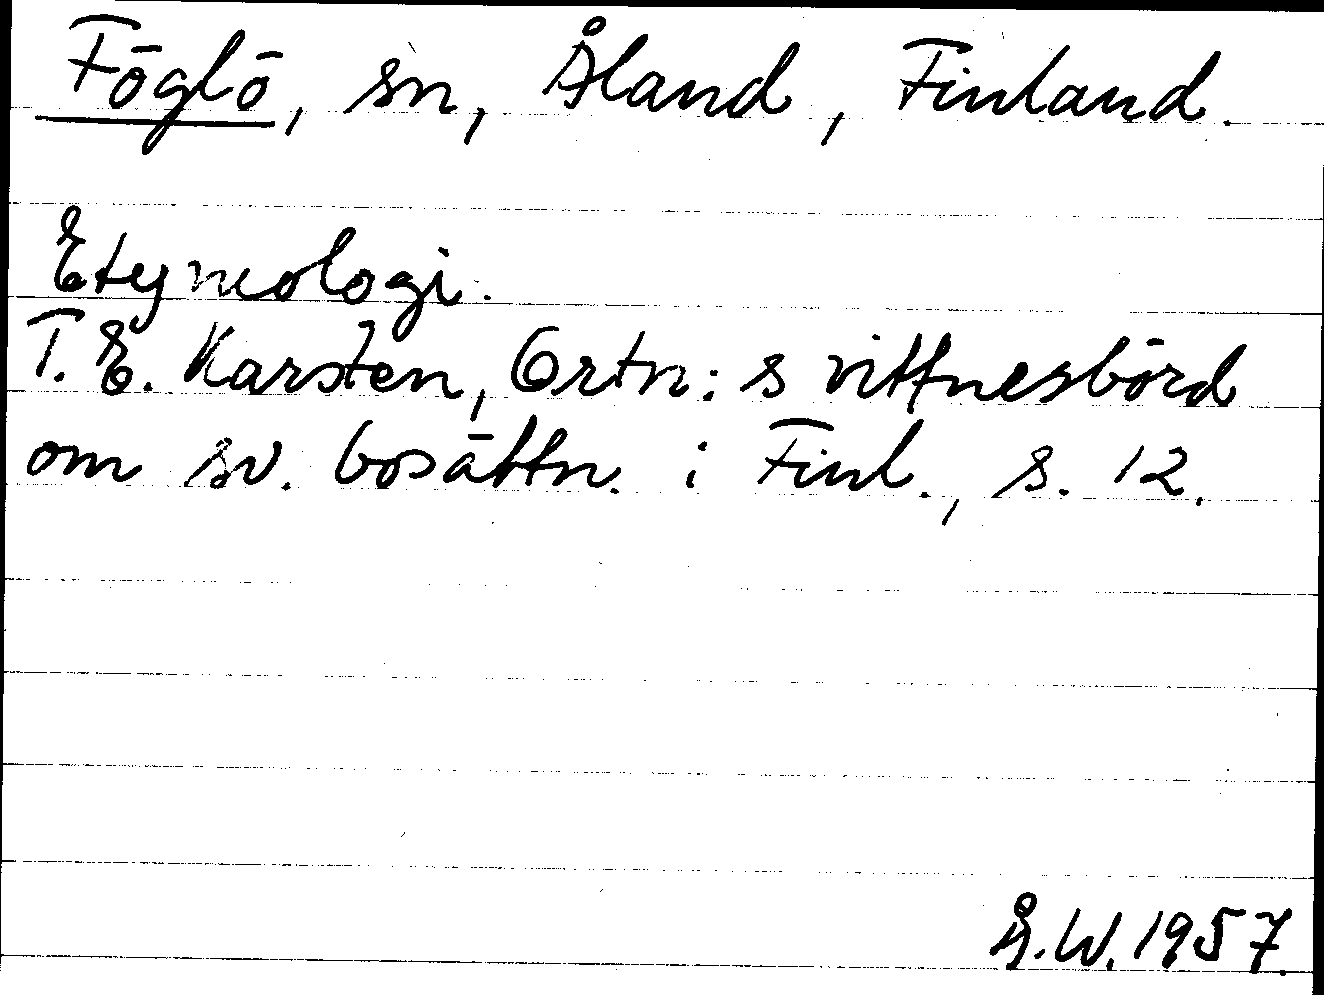 Föglö, sn, Åland, Finland.
Etymologi.
T. E. Karsten, Ortn:s vittnesbörd
om sv. bosättn. i Finl., s. 12.
Å.W. 1957.